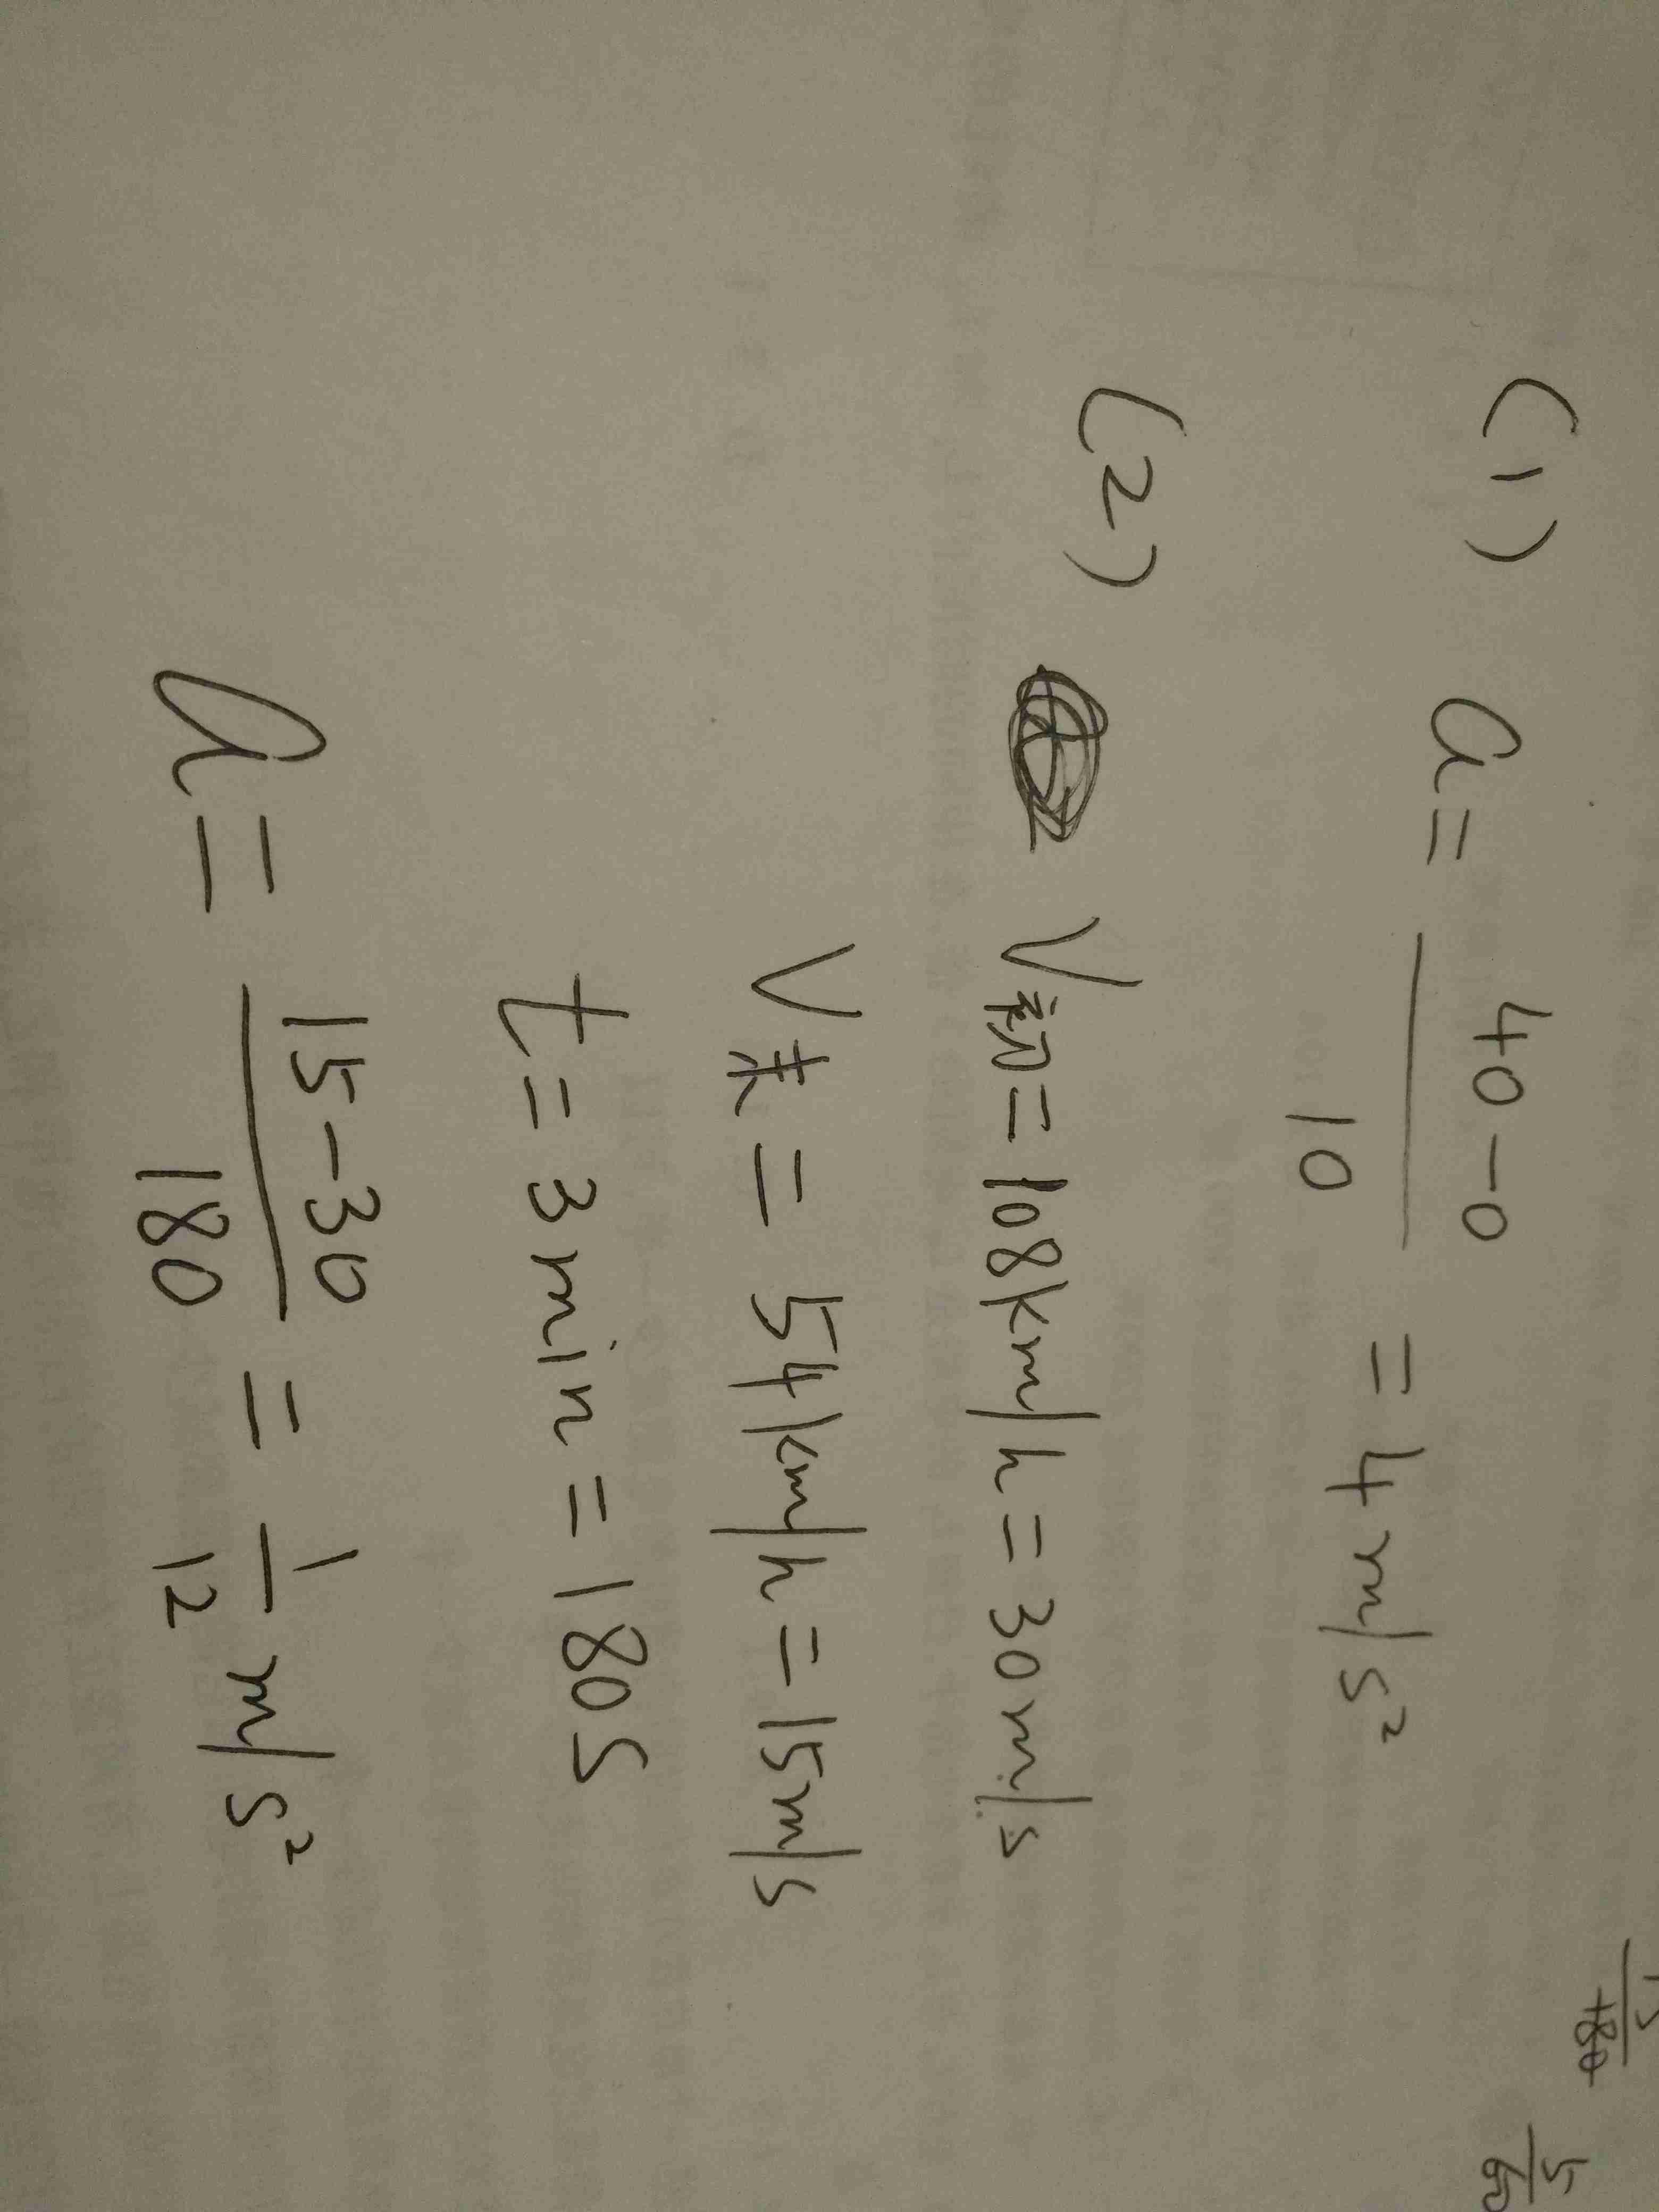 (1) a = \frac{40-0}{10} = 4 m/s²
(2) V初 = 108km/h = 30m/s
V末 = 54km/h = 15m/s
t = 3min = 180s
a = \frac{15-30}{180} = \frac{1}{12} m/s²